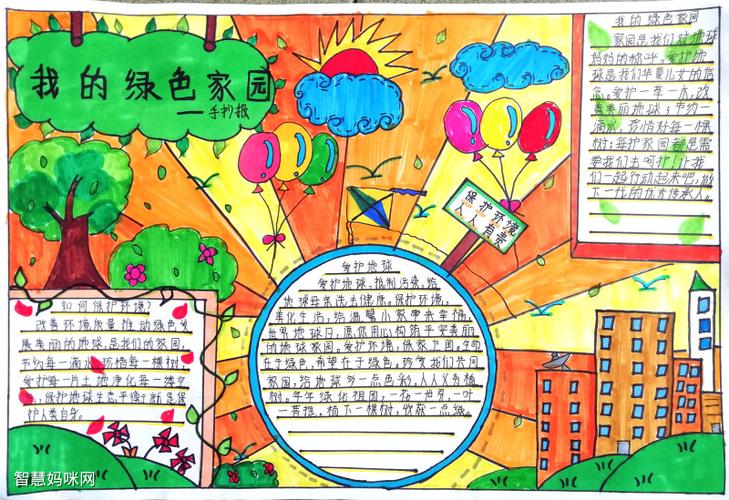 我的绿色家园
——手抄报
我的绿色家园
家园是我们对地球
妈妈的称呼。爱护地
球是我们华夏儿女的信
念。爱护一草一木，改
善美丽地球；节约一
滴水，珍惜每一棵
树；每护家园都是需
要我们去呵护，让我
们一起行动起来吧，做
下一代的优秀传承人。
保护环境
人人有责
爱护地球
爱护地球，抵制污染，给
地球母亲洗去健康，保护环境，
美化生活，给温馨小家带来幸福，
世界地球日，愿你用心构筑平安美丽
的地球家园。爱护环境，保家卫国，生命
在于绿色，希望在于绿色，珍爱我们共同
家园，给地球多一点色彩，人人义务植
树。年年绿化祖国，一花一世界，一叶
一菩提，植下一棵树，收获一点绿。
如何保护环境？
改善环境质量推动绿色发
展美丽的地球，是我们的家园，
节约每一滴水，珍惜每一棵树，
爱护每一片土地净化每一缕空
，保护地球生态平衡，就是保
护人类自身。
智慧妈咪网